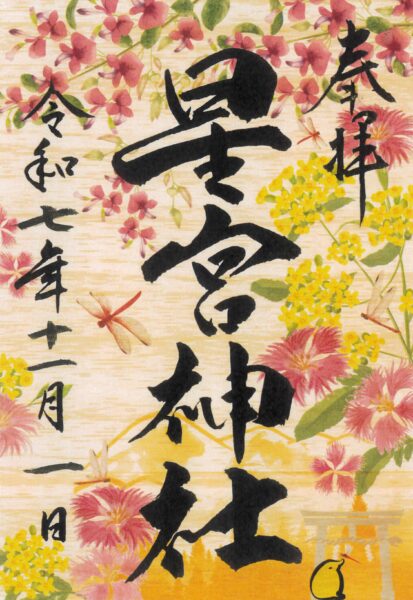 奉拝
星宮神社
令和七年十一月一日